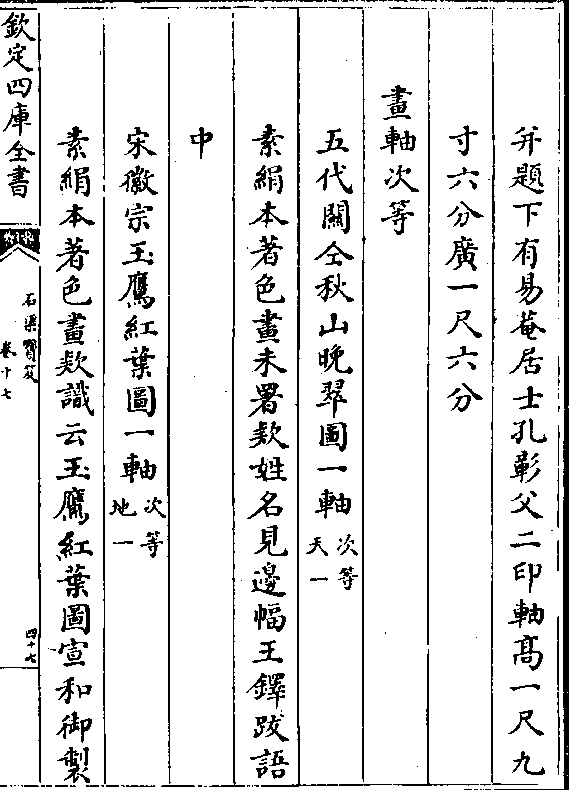 弁題下有易菴居士孔彰父二印軸髙一尺九
寸六分廣一尺六分
畫軸次等
五代關仝秋山晚翠圖一軸 次等天一
素絹本著色畫未署欵姓名見邊幅王鐸跋語
中
宋徽宗玉鷹紅葉圖一軸 次等地一
素絹本著色畫欵識云玉鷹紅葉圖宣和御製
欽定四庫全書
石渠寳笈
卷十七
四十七